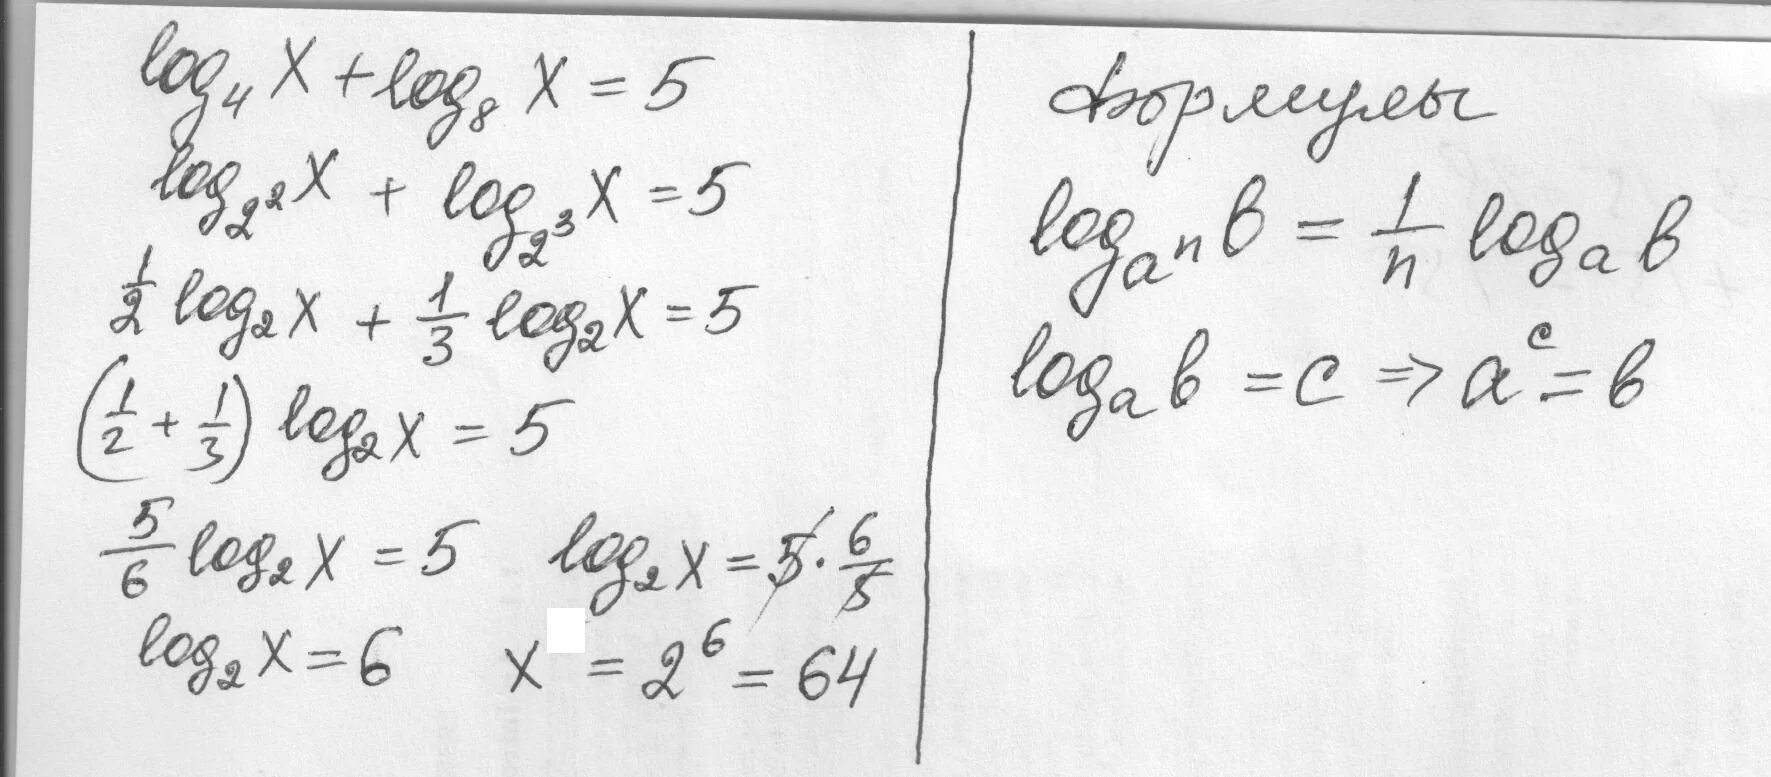 log₄ x + log₈ x = 5
log_{2²} x + log_{2³} x = 5
1/2 log₂ x + 1/3 log₂ x = 5
(1/2 + 1/3) log₂ x = 5
5/6 log₂ x = 5 log₂ x = 5 · 6/5
log₂ x = 6 x = 2⁶ = 64
Формулы
log_{aⁿ} b = 1/n logₐ b
logₐ b = c ⇒ a^c = b